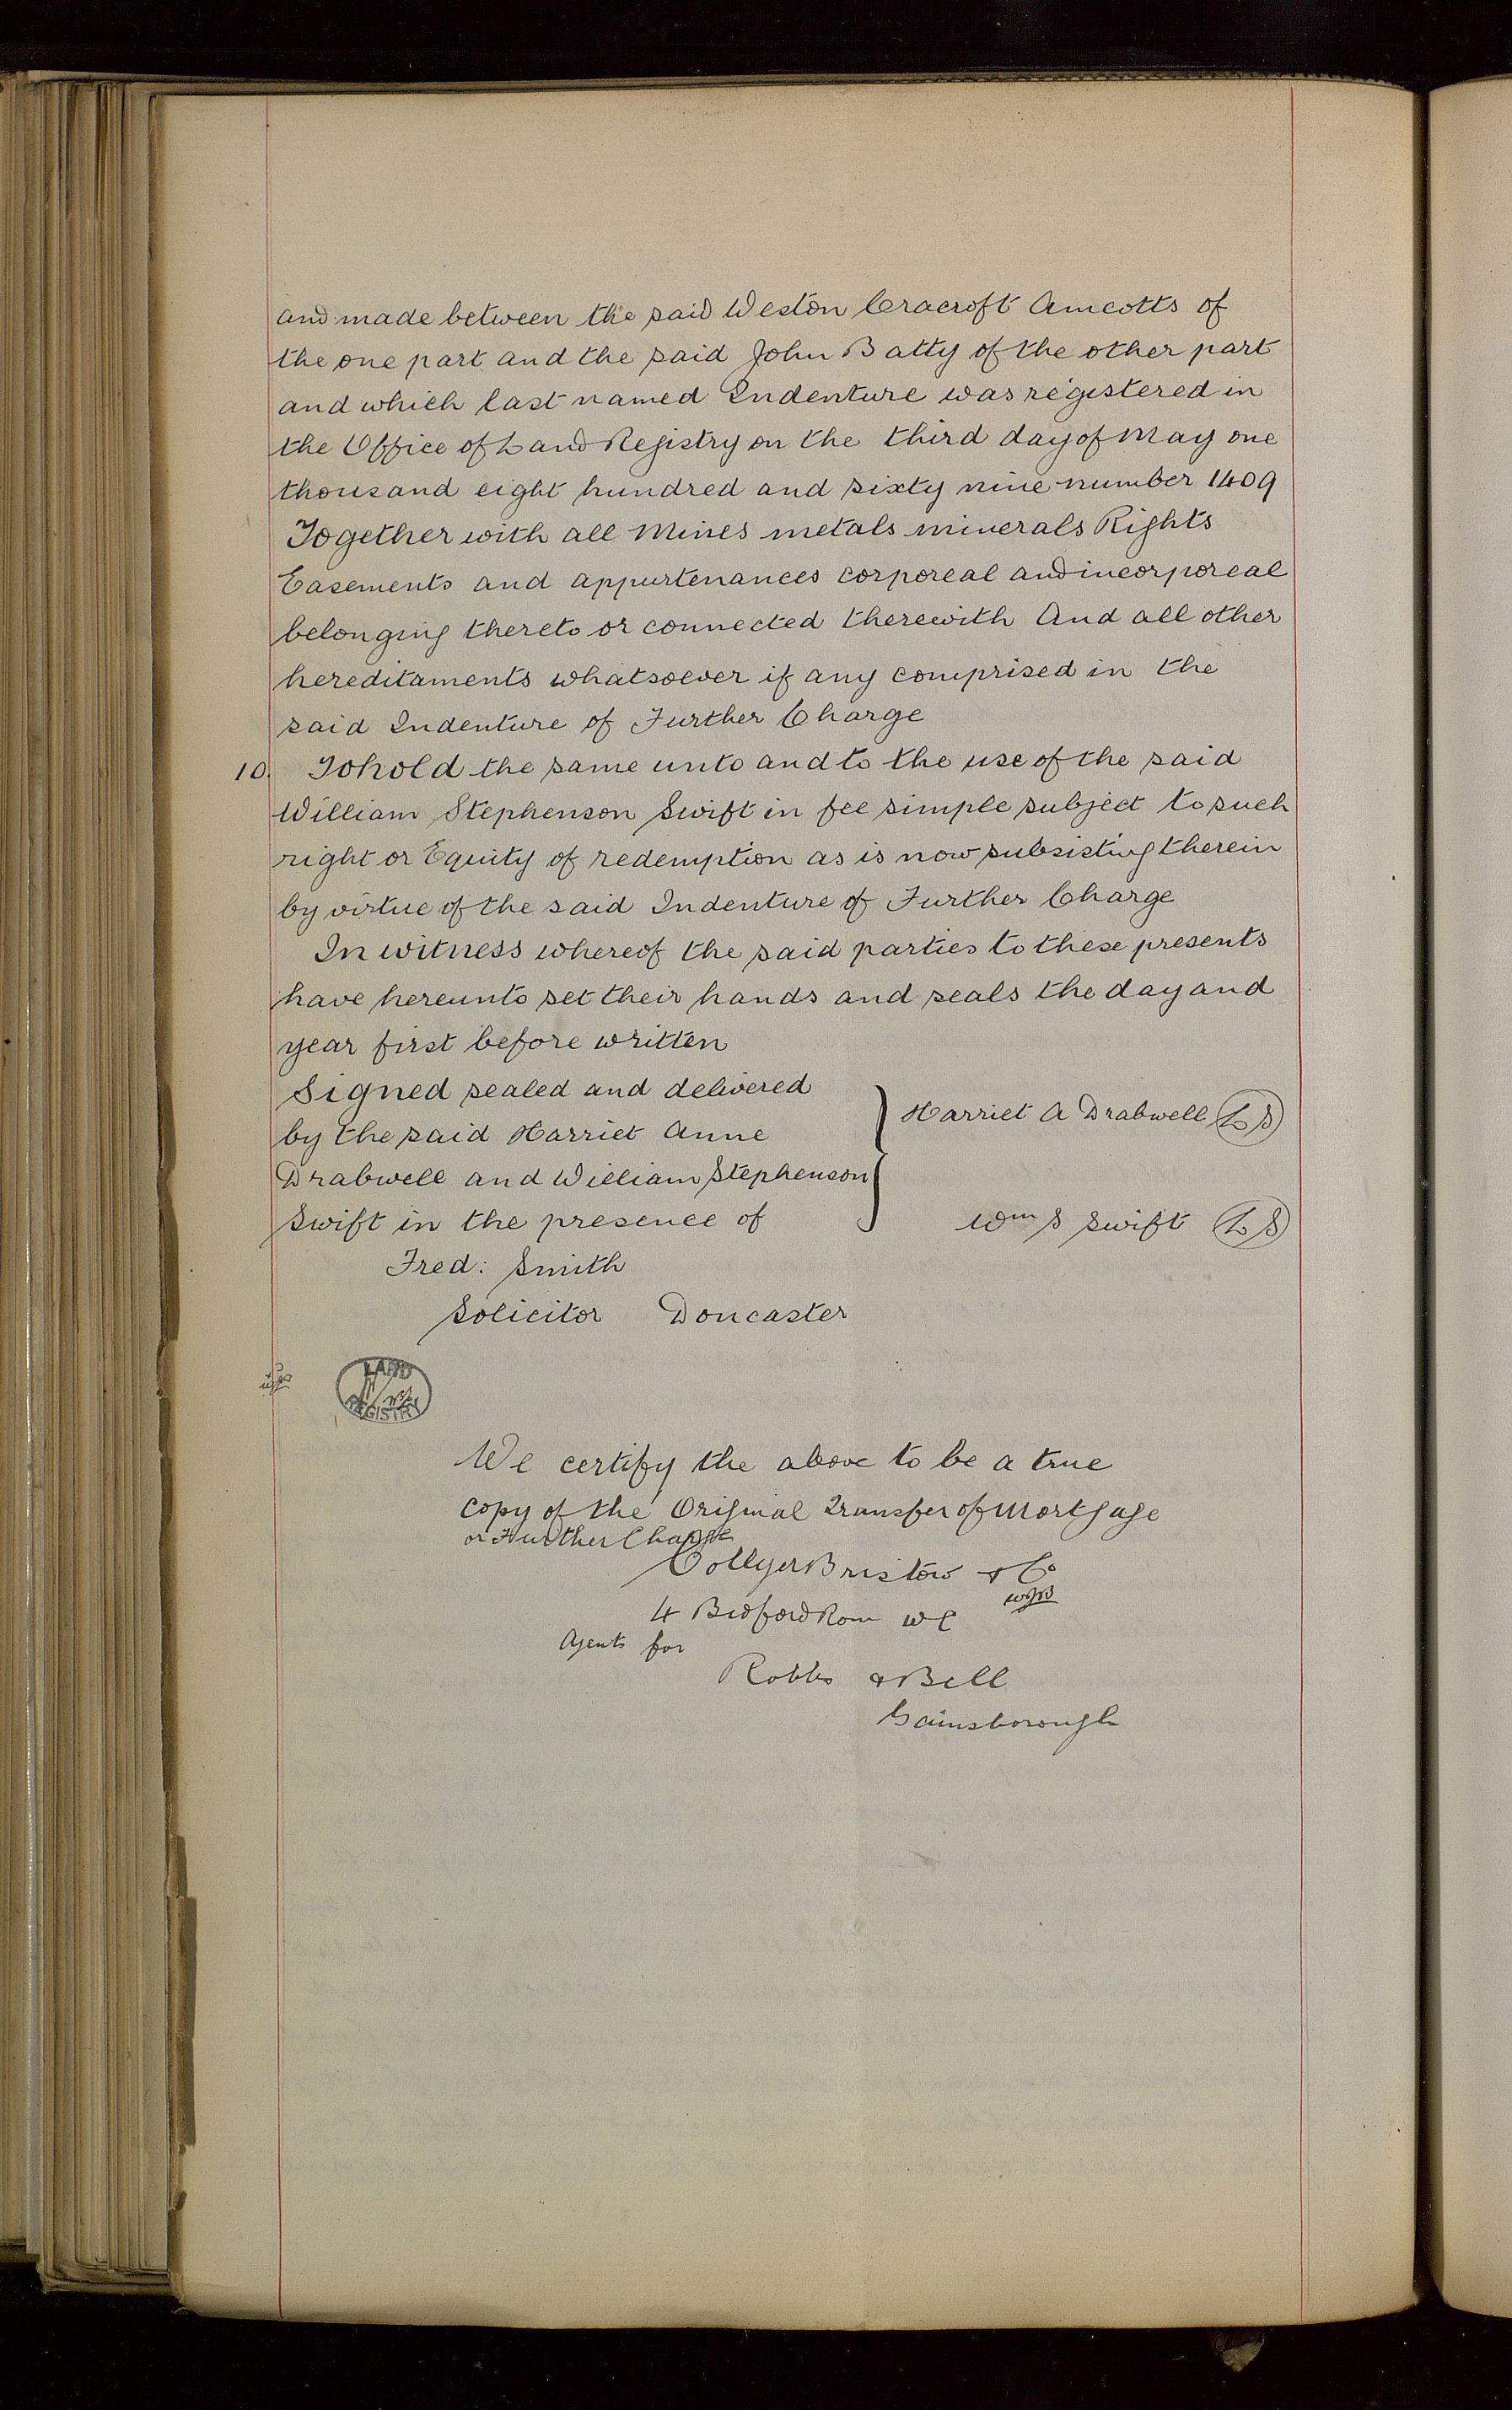 and made between the said Weston Cracroft Amcotts of
the one part and the said John Batty of the other part
and which last named Indenture was registered in
the Office of Land Registry on the third day of May one
thousand eight hundred and sixty nine number 1409
Together with all Mines metals minerals Rights
Easements and appurtenances corporeal and incorporeal
belonging thereto or connected therewith And all other
hereditaments whatsoever if any comprised in the
said Indenture of Further Charge
10. To hold the same unto and to the use of the said
William Stephenson Swift in fee simple subject to such
right or Equity of redemption as is now subsisting therein
by virtue of the said Indenture of Further Charge
In witness whereof the said parties to these presents
have hereunto set their hands and seals the day and
year first before written
Signed sealed and delivered
by the said Harriet Anne
Drabwell and William Stephenson
Swift in the presence of
Harriet A Drabwell L S
Wm S Swift L S
Fred: Smith
Solicitor Doncaster
LAND
REGISTRY
We certify the above to be a true
copy of the Original Transfer of Mortgage
or Further Charge
Collyer Bristow & Co
4 Bedford Row W C
Agents for
Robbs & Bell
Gainsborough